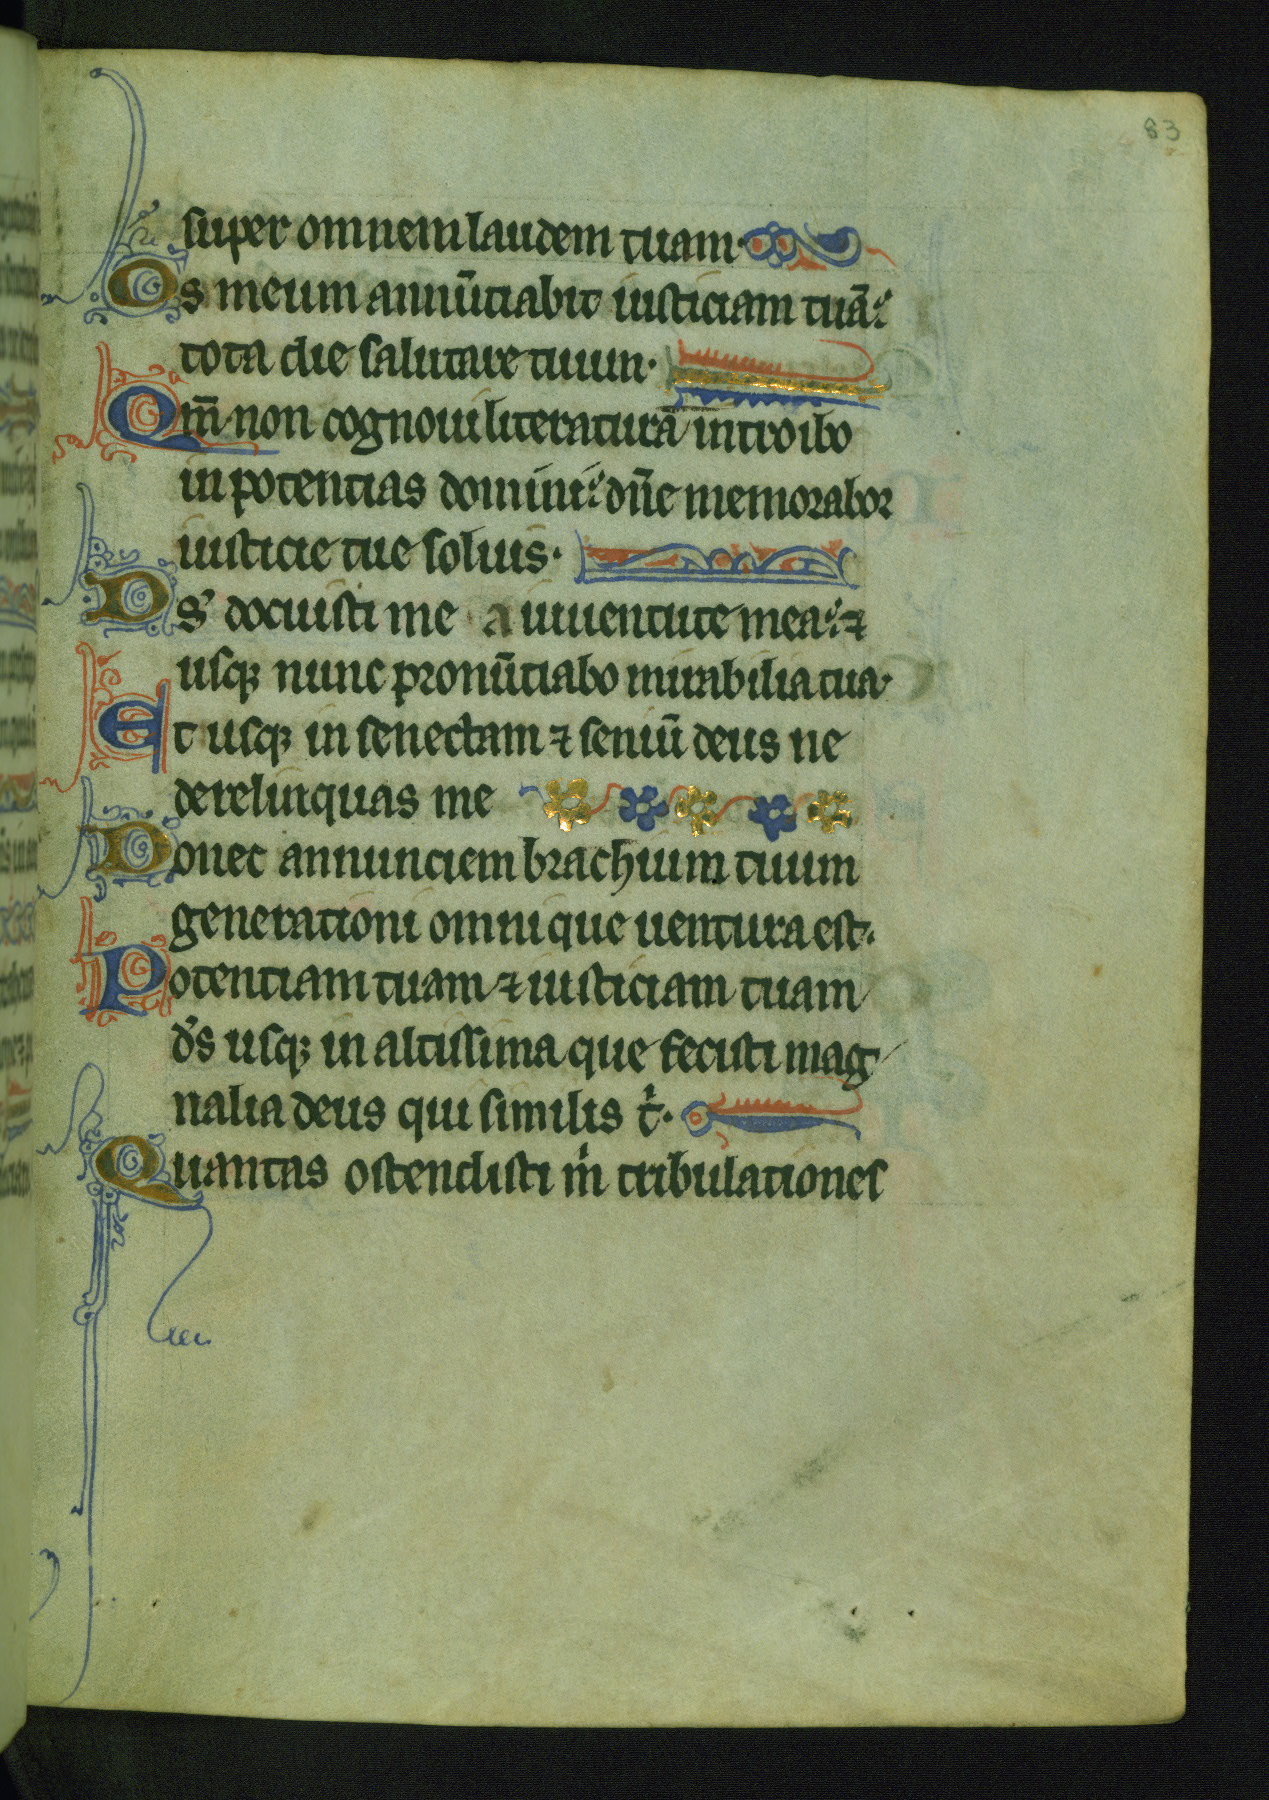 83
super omnem laudem tuam·
Os meum annũtiabit iusticiam tuã:
tota die salutare tuum·
Qm̃ non cognoui literaturã introibo
in potentias domini: dñe memorabor
iusticie tue solius·
Ds’ docuisti me a iuuentute mea: ⁊
usqꝫ nunc pronũtiabo mirabilia tua·
Et usqꝫ in senectam ⁊ seniũ deus ne
derelinquas me
Donec annunciem brachium tuum
generationi omni que uentura est·
Potentiam tuam ⁊ iusticiam tuam
ds̃ usqꝫ in altissima que fecisti mag
nalia deus qui similis t̍·
Quantas ostendisti m̍ tribulationes